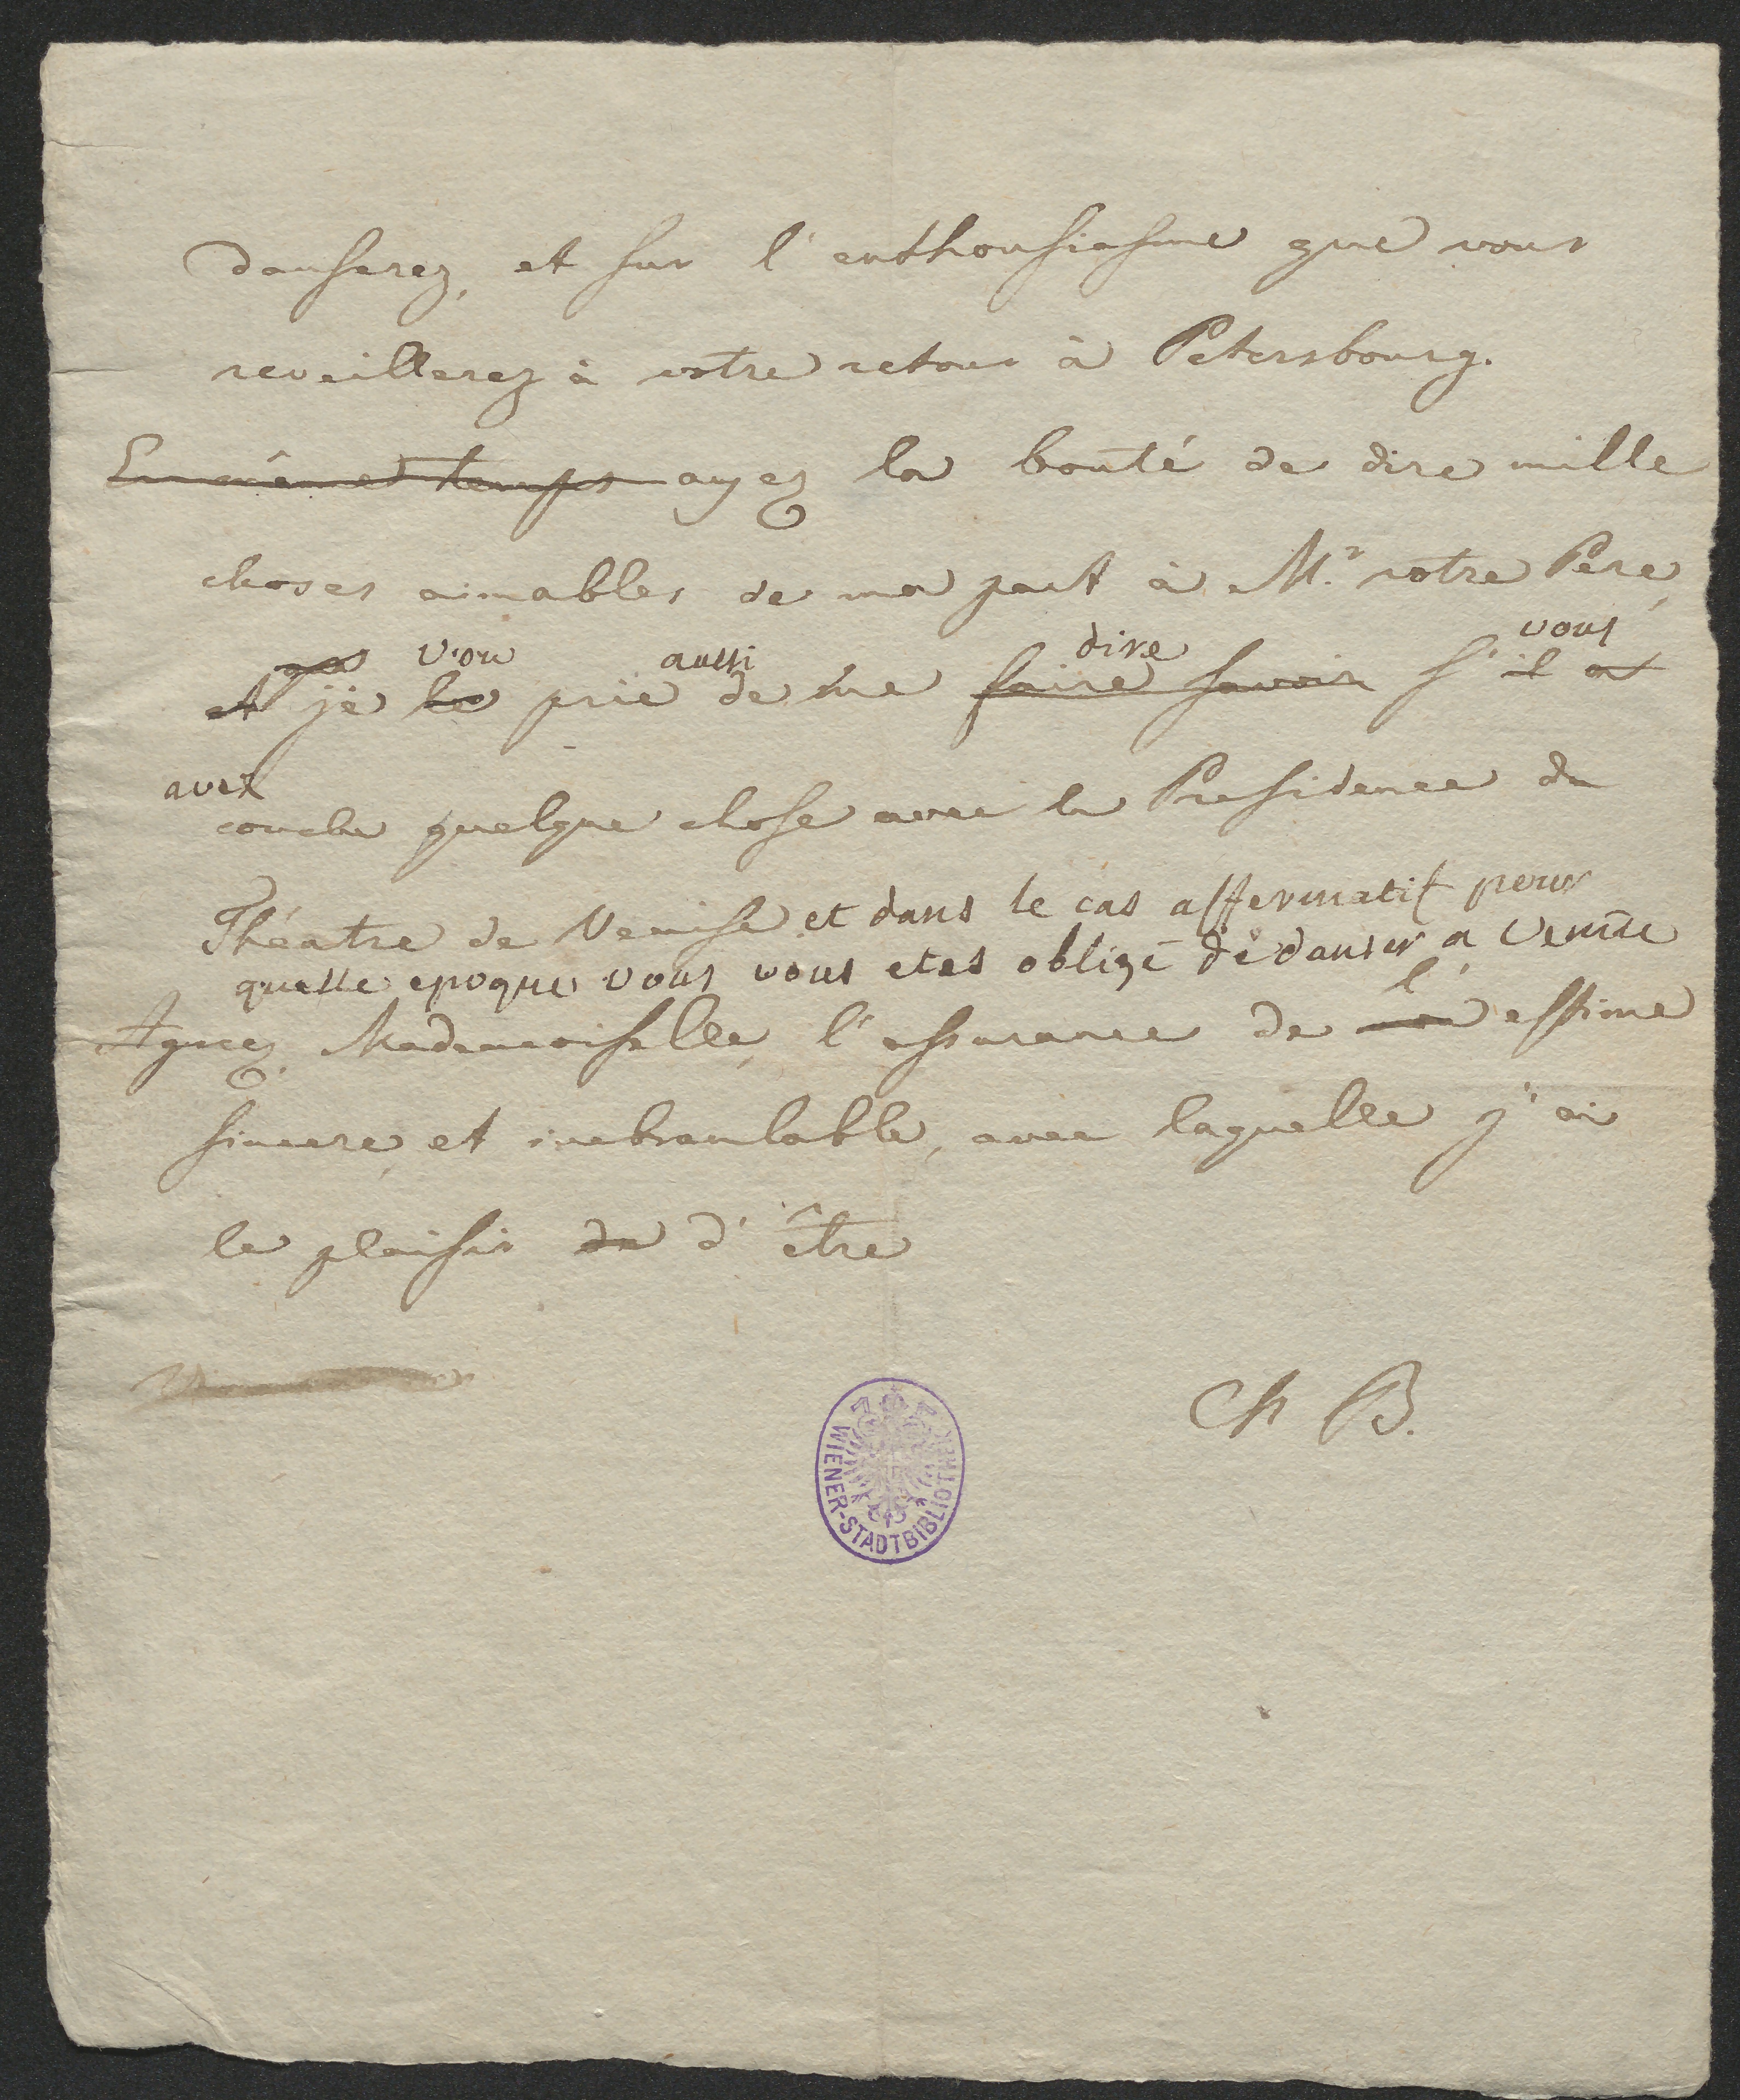 danserez, et sur l'enthousiasme que vous
reveillerez à votre retour à Petersbourg.
En même temps ayez la bonté de dire mille
choses aimables de ma part à M.r votre Pere,
vou aussi dire vous
et je le prie de me faire savoir s'il a
avez
conclu quelque chose avec la Presidence du
Théatre de Venise et dans le cas affermatif pour
quelle epoque vous vous etes obligé de danser a Venise
l'
Agreez, Mademoiselle, l'assurance de mon estime
sincere, et inebranlable, avec laquelle j'ai
le plaisir de d'être
Ch B.
WIENER-STADTBIBLIOTHEK